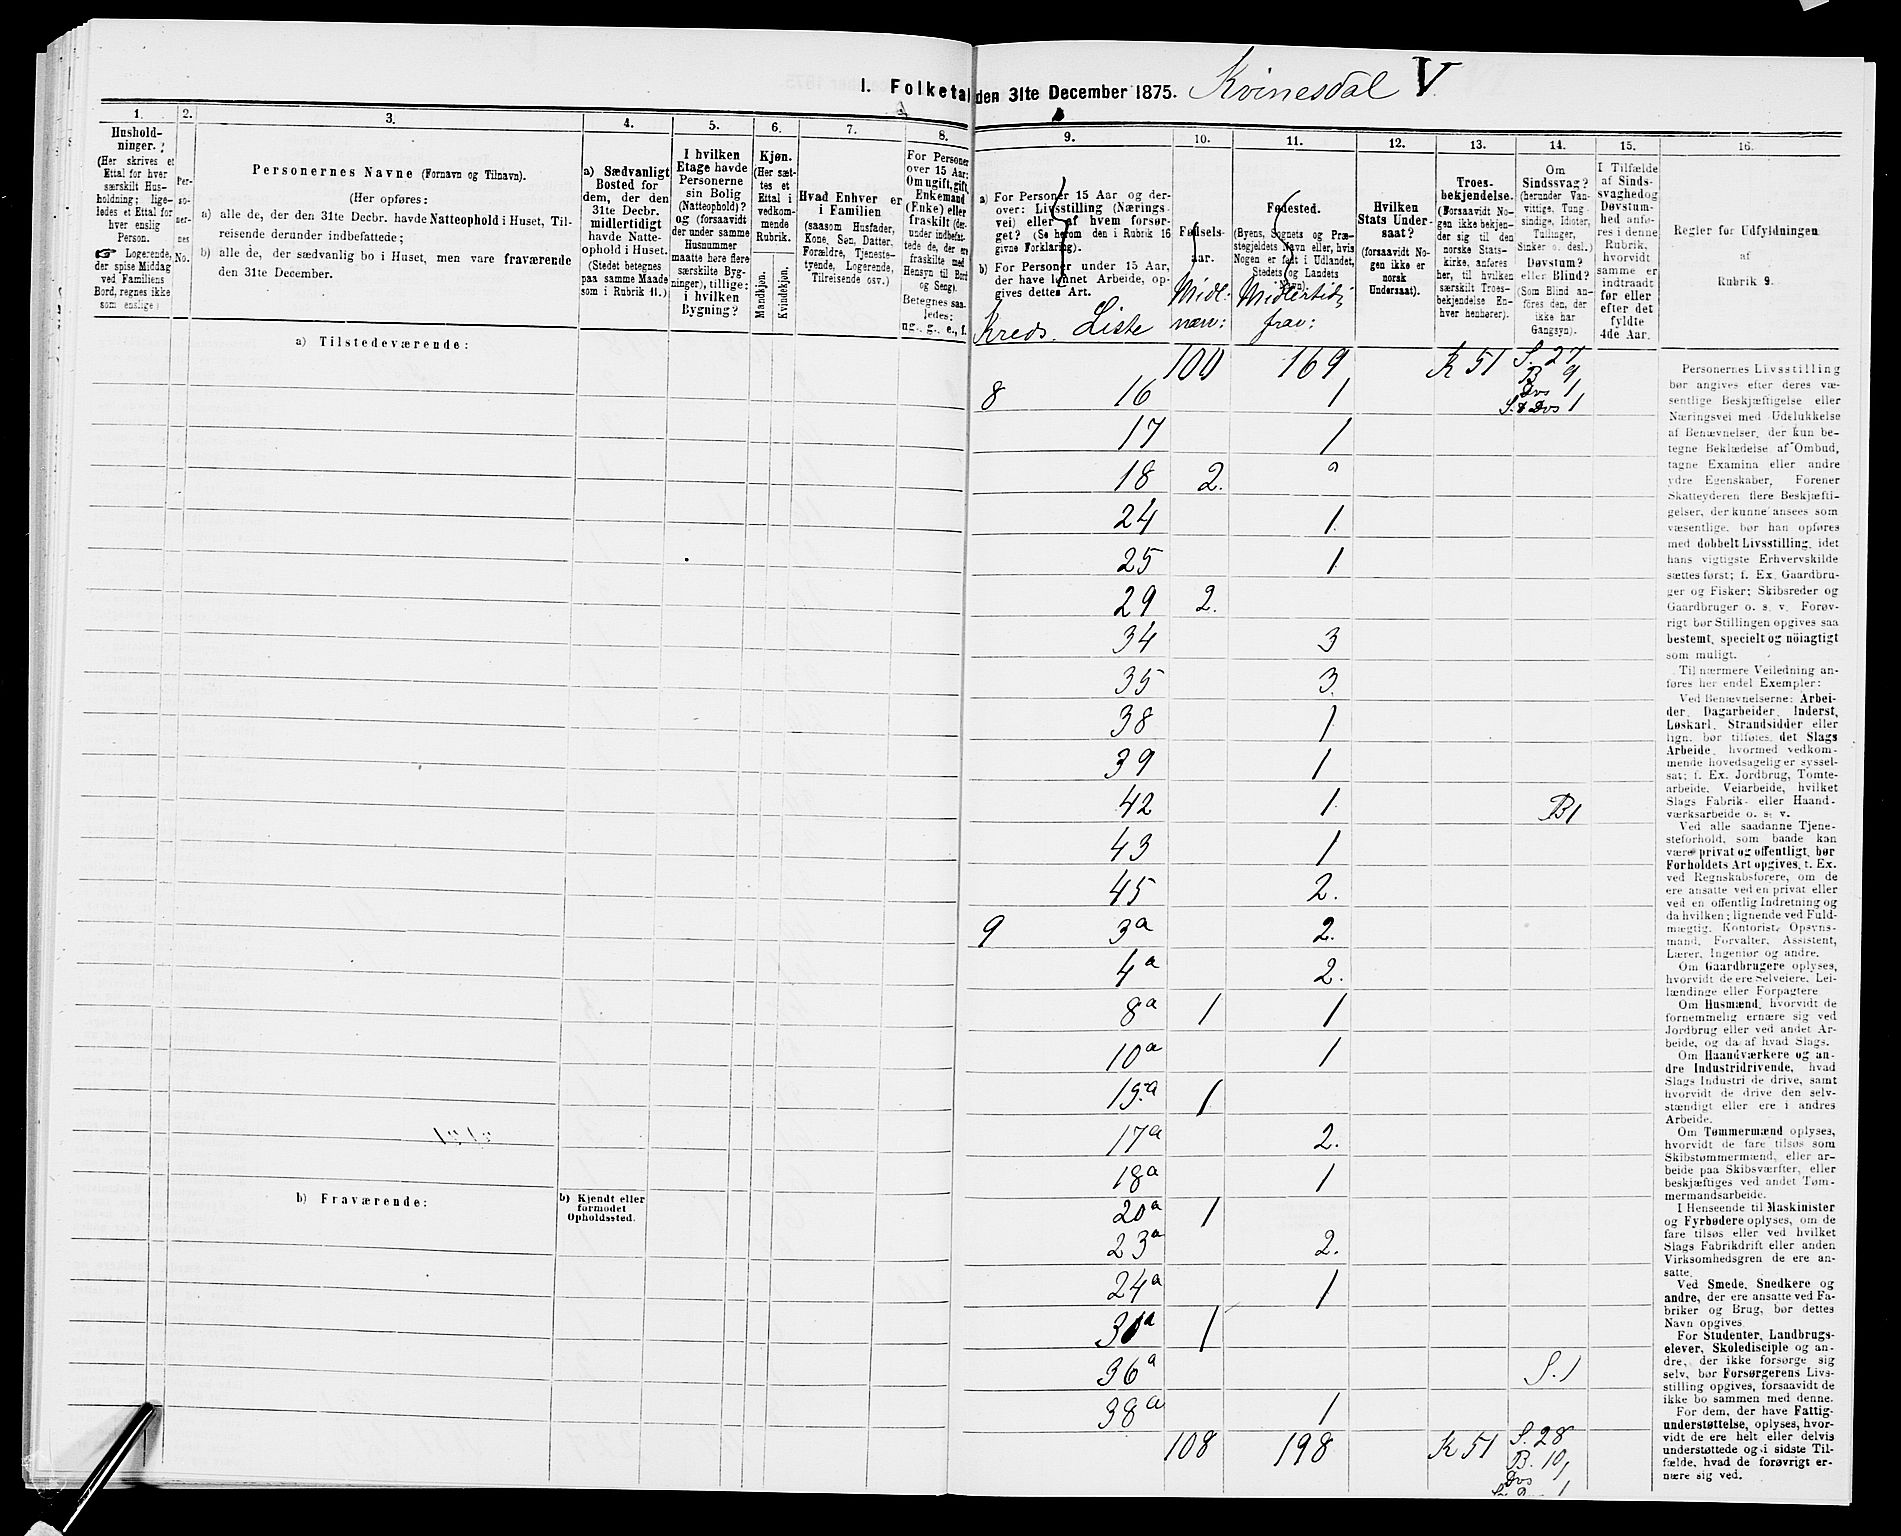 I. Folketal den 31te December 1875. Kvinesdal V.
1.
Hushold-
ninger.
(Her skrives et
Ettal for hver
særskilt Hus-
holdning; lige-
ledes et Ettal for
hver enslig
Person.
☞ Logerende,
der spise Middag
ved Familiens
Bord, regnes ikke
som enslige.)
2.
Per-
so-
ner-
nes
No.
3.
Personernes Navne (Fornavn og Tilnavn).
(Her opføres:
a) alle de, der den 31te Decbr. havde Natteophold i Huset, Til-
reisende derunder indbefattede;
b) alle de, der sædvanlig bo i Huset, men vare fraværende
den 31te December.
4.
a) Sædvanligt
Bosted for
dem, der den
31te Decbr.
midlertidigt
havde Natte-
ophold i Huset.
(Stedet betegnes
paa samme Maade
som i Rubrik 11.)
5.
I hvilken
Etage havde
Personerne
sin Bolig
(Natteophold)?
og (forsaavidt
der under samme
Husnummer
maatte høre flere
særskilte Byg-
ninger), tillige:
i hvilken
Bygning?
6.
Kjøn.
(Her sæt-
tes et
Ettal i
vedkom-
mende
Rubrik.
Mandkjøn.
Kvindekjøn.
7.
Hvad Enhver er
i Familien
(saasom Husfader,
Kone, Søn, Datter,
Forældre, Tjeneste-
tyende, Logerende,
Tilreisende osv.)
8.
For Personer
over 15 Aar:
Om ugift, gift,
Enkemand
(Enke) eller
fraskilt (der-
under indbefat-
tede de, der ere
fraskilte med
Hensyn til Bord
og Seng).
Betegnes saa-
ledes:
ug., g., e., f.
9.
a) For Personer 15 Aar og der-
over: Livsstilling (Nærings-
vei) eller af hvem forsør-
get? (Se herom den i Rubrik 16
givne Forklaring).
b) For Personer under 15 Aar,
der have lønnet Arbeide, op-
gives dettes Art.
Kreds. Liste
10.
Fødsels-
aar.
Midl:
nærv:
11.
Fødested.
(Byens, Sognets og Præ-
stegjeldets Navn eller, hvis
Nogen er født i Udlandet,
Stedets og Landets
Navn).
Midlertidi
frav:
12.
Hvilken
Stats Under-
saat?
(forsaavidt No-
gen ikke er
norsk
Undersaat).
13.
Troes-
bekjendelse.
(Forsaavidt No-
gen ikke bekjen-
der sig til den
norske Stats-
kirke, anføres
her, til hvilken
særskilt Troes-
bekjendelse En-
hver henhører).
14.
Om
Sindssvag?
(herunder Van-
vittige, Tung-
sindige, Idioter,
Tullinger,
Sinker o. desl.)
Døvstum?
eller Blind?
(Som Blind an-
føres den, der
ikke har
Gangsyn).
15.
I Tilfælde
af Sinds-
svaghed og
Døvstum-
hed anfø-
res i denne
Rubrik,
hvorvidt
samme er
indtraadt
før eller
efter det
fyldte
4de Aar.
16.
Regler for Udfyldningen
af
Rubrik 9.
a) Tilstedeværende:
100 169 K 51 S. 27
B 9
Dvs 1
S. & Dvs 1
8 16 1
17 1
18 2.
24 1
25 1
29 2.
34 3
35 3
38 1
39 1
42 1 B1
43 1
45 2.
9 3a 2.
4a 2.
8a 1 1
10a 1
15.a 1
17a 2.
18a 1
20a 1
23a 2.
24a 1
31a 1
36a S. 1
38a 1
108 198 K 51 S. 28
B. 10
Dvs 1
b) Fraværende:
b) Kjendt eller
formodet
Opholdssted.
Personernes Livsstilling
bør angives efter deres væ-
sentlige Beskjæftigelse eller
Næringsvei med Udelukkelse
af Benævnelser, der kun be-
tegne Beklædelse af Ombud,
tagne Examina eller andre
ydre Egenskaber. Forener
Skatteyderen flere Beskjæfti-
gelser, der kunne ansees som
væsentlige, bør han opføres
med dobbelt Livsstilling, idet
hans vigtigste Erhvervskilde
sættes først; f. Ex. Gaardbru-
ger og Fisker; Skibsreder og
Gaardbruger o. s. v. Forøv-
rigt bør Stillingen opgives saa
bestemt, specielt og nöiagtigt
som muligt.
Til nærmere Veiledning an-
føres her endel Exempler:
Ved Benævnelserne: Arbei-
der, Dagarbeider, Inderst,
Løskarl, Strandsidder eller
lign. bør tilføies det Slags
Arbeide, hvormed vedkom-
mende hovedsagelig er syssel-
sat; f. Ex. Jordbrug, Tomte-
arbeide, Veiarbeide, hvilket
Slags Fabrik- eller Haand-
værksarbeide o. s. v.
Ved alle saadanne Tjene-
steforhold, som baade kan
være privat og offentligt, bør
Forholdets Art opgives, t. Ex.
ved Regnskabsførere, om de
ere ansatte ved en privat eller
ved en offentlig Indretning og
da hvilken; lignende ved Fuld-
mægtig, Kontorist, Opsyns-
mand, Forvalter, Assistent,
Lærer, Ingeniør og andre.
Om Gaardbrugere oplyses,
hvorvidt de ere Selveiere, Lei-
lændinge eller Forpagtere
Om Husmænd, hvorvidt de
fornemmelig ernære sig ved
Jordbrug eller ved andet Ar-
beide, og da af hvad Slags.
Om Haandværkere og an-
dre Industridrivende, hvad
Slags Industri de drive, samt
hvorvidt de drive den selv-
stændigt eller ere i andres
Arbeide.
Om Tømmermænd oplyses,
hvorvidt de fare tilsøs som
Skibstømmermænd, eller ar-
beide paa Skibsværfter, eller
beskjæftiges ved andet Tøm-
mermandsarbeide.
I Henseende til Maskinister
og Fyrbødere oplyses, om de
fare tilsøs eller ved hvilket
Slags Fabrikdrift eller anden
Virksomhedsgren de ere an-
satte.
Ved Smede, Snedkere og
andre, der ere ansatte ved Fa-
briker og Brug, bør dettes
Navn opgives.
For Studenter, Landbrugs-
elever, Skoledisciple og an-
dre, der ikke forsørge sig
selv, bør Forsørgerens Livs-
stilling opgives, forsaavidt de
ikke bo sammen med denne.
For dem, der have Fattig-
understøttelse, oplyses, hvor-
vidt de ere helt eller delvis
understøttede og i sidste Til-
fælde, hvad de forøvrigt er-
nære sig ved.